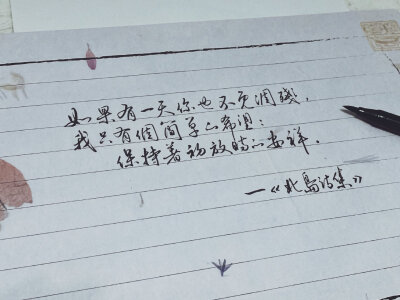 如果有一天你也不免凋残，
我只有個简单的希望：
保持着初放时的安祥．
—《北岛诗集》